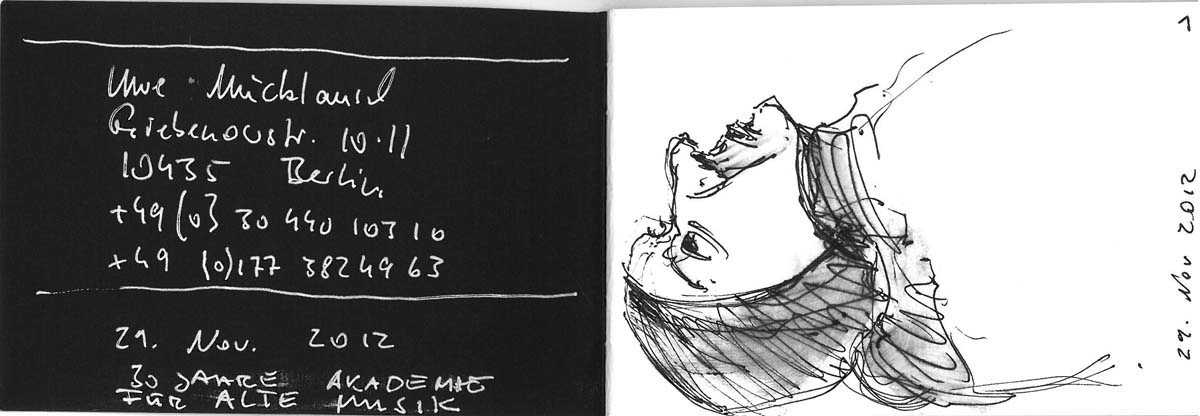 Uwe Mücklausch
Griebenowstr. 10-11
10435 Berlin
+49 (0) 30 440 103 10
+49 (0)177 3824963
29. Nov. 2012
30 JAHRE AKADEMIE
FÜR ALTE MUSIK
29. Nov 2012